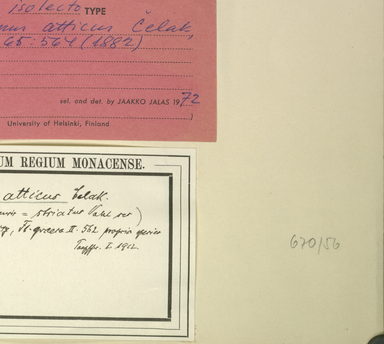 isolecto TYPE
mus atticus Čelak
65: 564 (1882)
sel. and det. by JAAKKO JALAS 1972
)
University of Helsinki, Finland
UM REGIUM MONACENSE.
atticus Čelak.
= striatus Vahl
Fl. graeca II. 562 propria species
I. 1912.
670/56